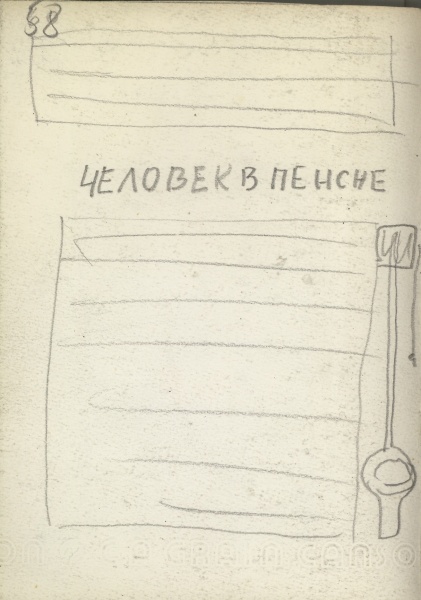 38
ЧЕЛОВЕК В ПЕНСНЕ